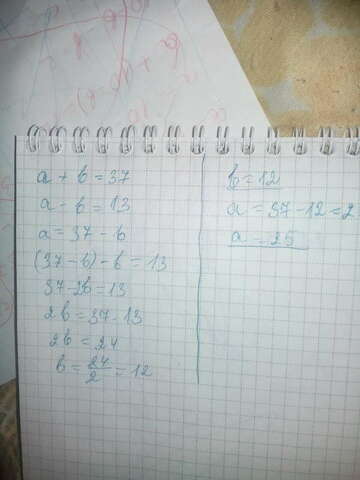 a + b = 37
a - b = 13
a = 37 - b
(37 - b) - b = 13
37 - 2b = 13
2b = 37 - 13
2b = 24
b = 24/2 = 12
b = 12
a = 37 - 12 = 2
a = 25